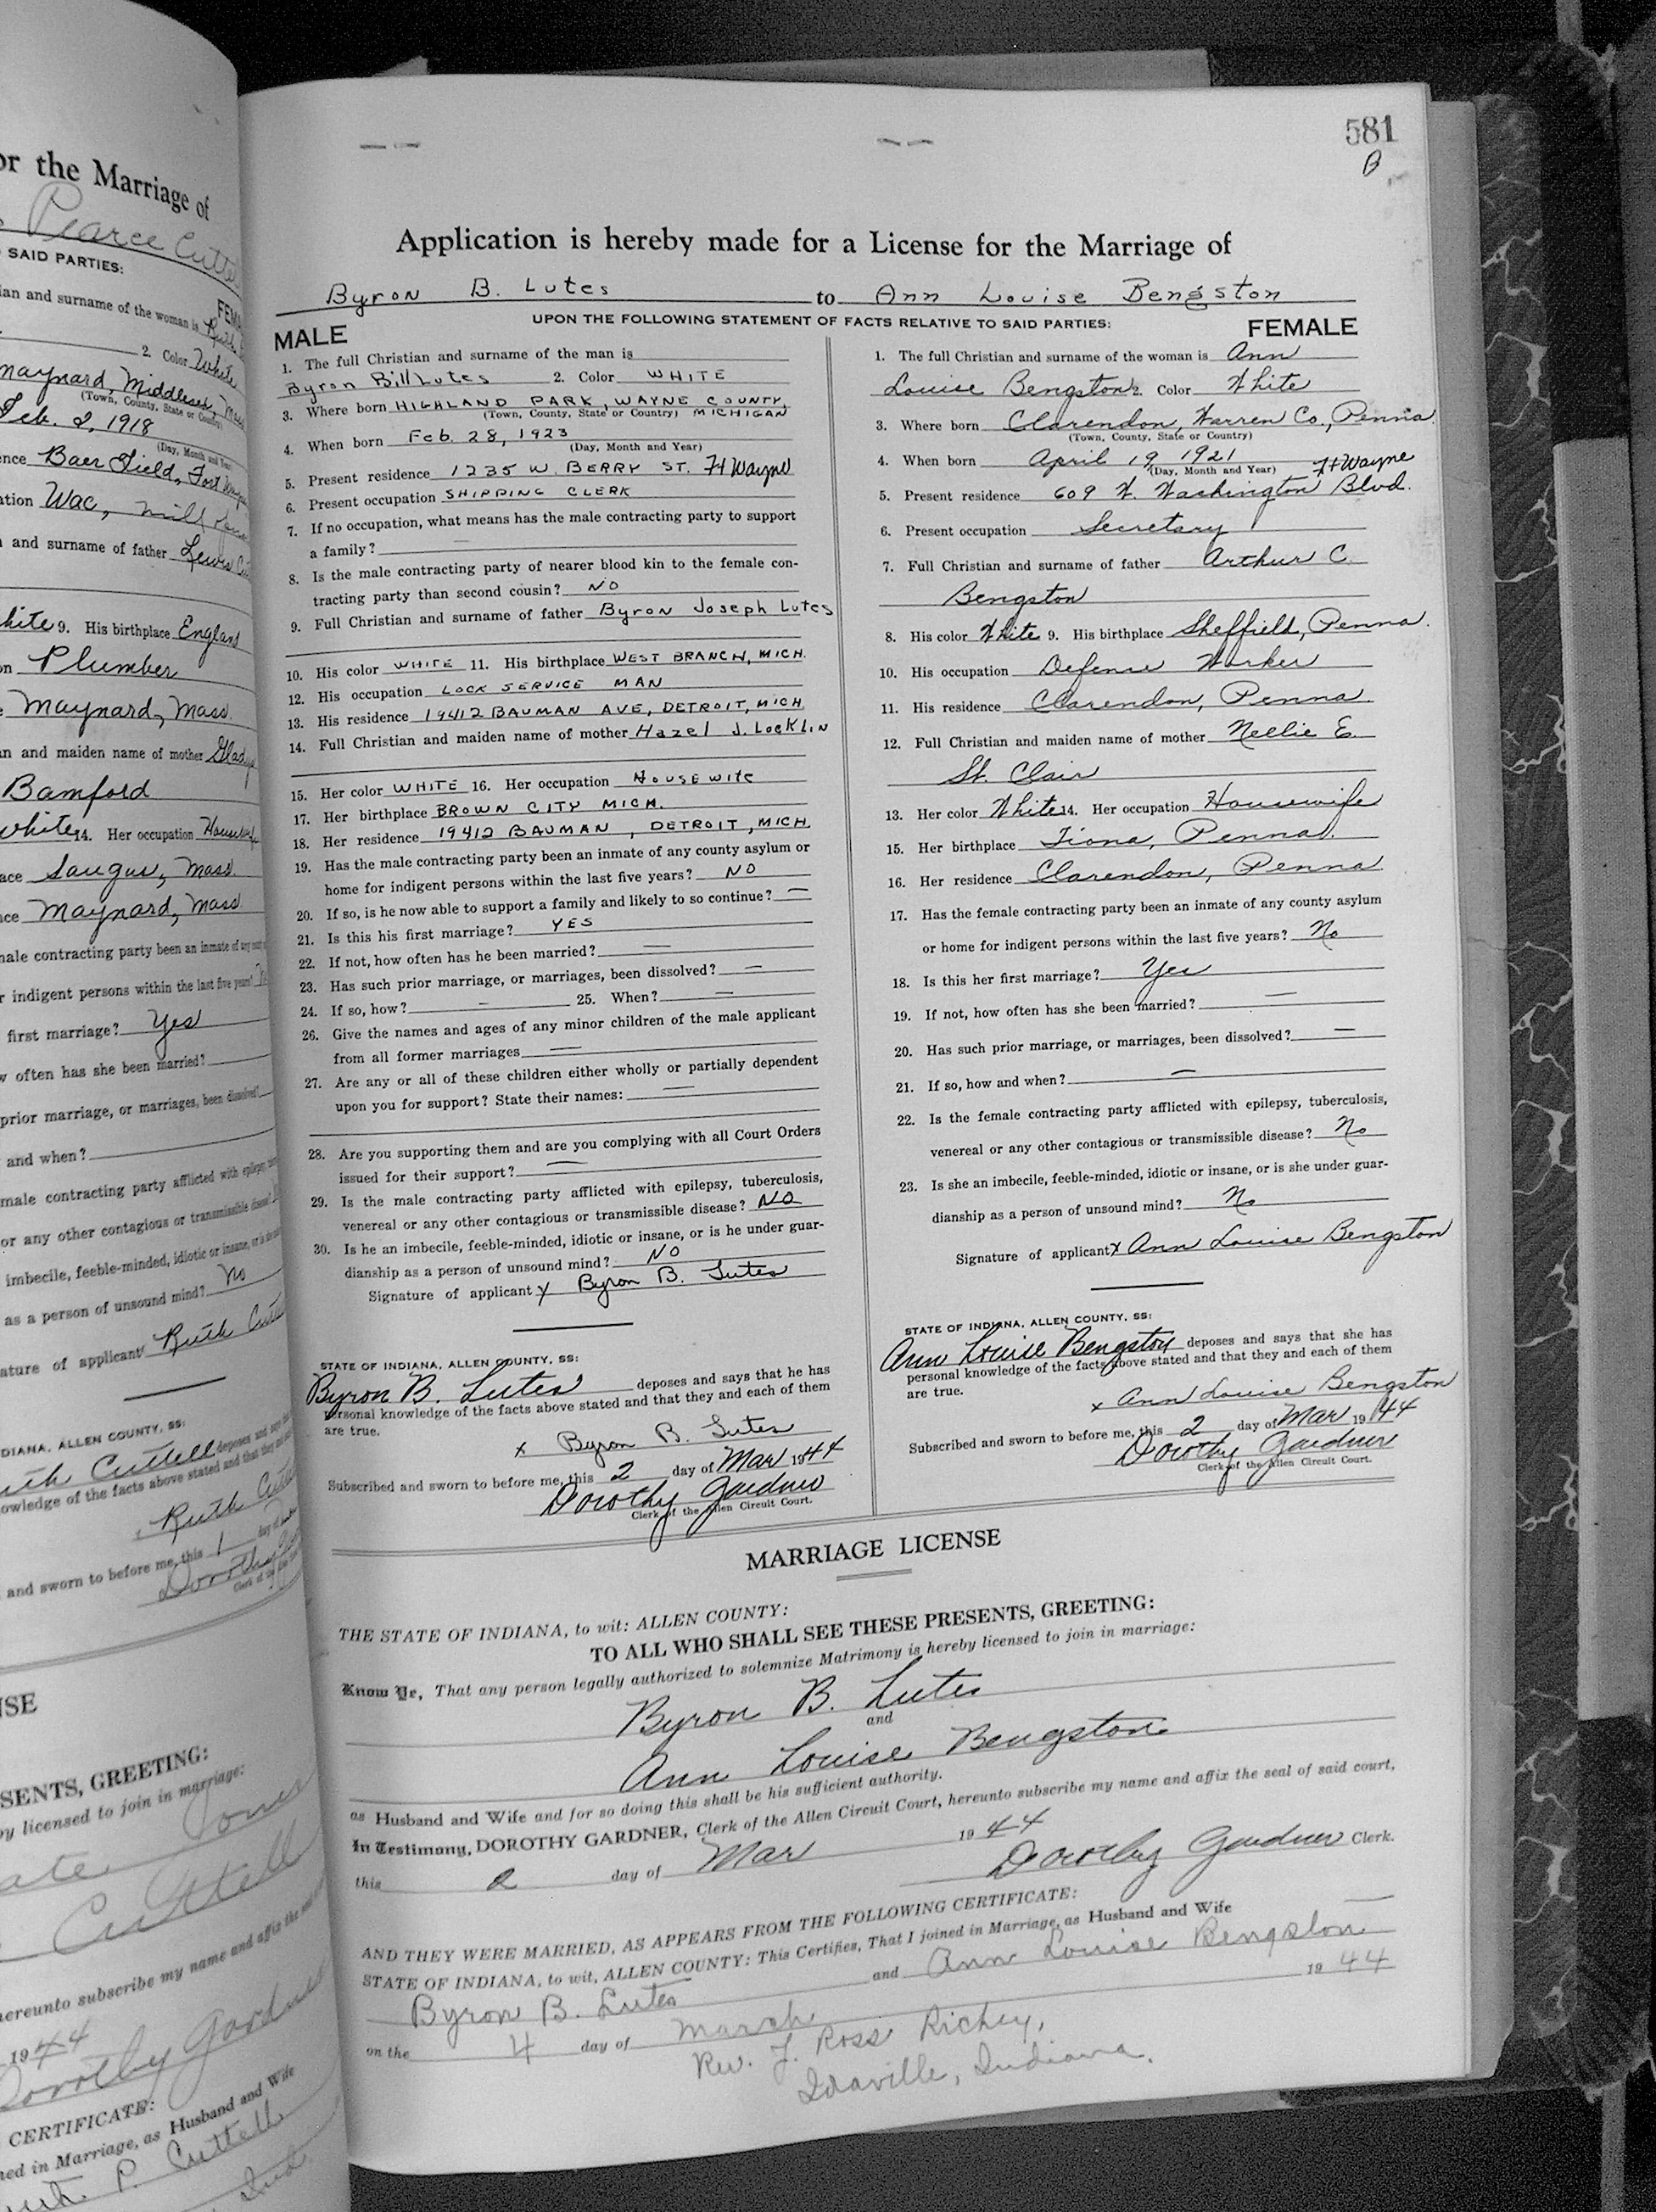 or the Marriage of
Pearce Cutte
SAID PARTIES:
ian and surname of the woman is
2. Color White
Maynard, Middlesex,
(Town, County, State or Country)
Feb. 2, 1918
(Day, Month and Year)
ence Baer Field, Fort Wayne
ation Wac,
and surname of father Lewis
hite 9. His birthplace England
on Plumber
Maynard, Mass.
an and maiden name of mother
Bamford
white 14. Her occupation
ace Saugus, Mass
ce Maynard, Mass
male contracting party been an inmate of any
r indigent persons within the last five years?
first marriage? Yes
w often has she been married?
prior marriage, or marriages, been dissolved?
and when?
male contracting party afflicted with epilepsy,
or any other contagious or transmissible disease?
imbecile, feeble-minded, idiotic or insane,
as a person of unsound mind? No
ature of applicant Ruth
DIANA, ALLEN COUNTY, SS:
uth Cuttell deposes and says
owledge of the facts above stated and that they
Ruth
and sworn to before me, this 1
Dorothy
NSE
SENTS, GREETING:
by licensed to join in marriage:
Jones
Cuttell
hereunto subscribe my name and affix the
1944
Dorothy Gardner
CERTIFICATE:
ned in Marriage, as Husband and Wife
P. Cuttell
Ind
581
B
Application is hereby made for a License for the Marriage of
Byron B. Lutes to Ann Louise Bengston
UPON THE FOLLOWING STATEMENT OF FACTS RELATIVE TO SAID PARTIES:
MALE
1. The full Christian and surname of the man is
Byron Bill Lutes 2. Color WHITE
3. Where born HIGHLAND PARK, WAYNE COUNTY,
(Town, County, State or Country) MICHIGAN
4. When born Feb. 28, 1923
(Day, Month and Year)
5. Present residence 1235 W. BERRY ST. Ft Wayne
6. Present occupation SHIPPING CLERK
7. If no occupation, what means has the male contracting party to support
a family? —
8. Is the male contracting party of nearer blood kin to the female con-
tracting party than second cousin? NO
9. Full Christian and surname of father Byron Joseph Lutes
10. His color WHITE 11. His birthplace WEST BRANCH, MICH.
12. His occupation LOCK SERVICE MAN
13. His residence 19412 BAUMAN AVE, DETROIT, MICH
14. Full Christian and maiden name of mother Hazel J. Locklin
15. Her color WHITE 16. Her occupation Housewife
17. Her birthplace BROWN CITY MICH.
18. Her residence 19412 BAUMAN, DETROIT, MICH.
19. Has the male contracting party been an inmate of any county asylum or
home for indigent persons within the last five years? NO
20. If so, is he now able to support a family and likely to so continue? —
21. Is this his first marriage? YES
22. If not, how often has he been married? —
23. Has such prior marriage, or marriages, been dissolved? —
24. If so, how? — 25. When? —
26. Give the names and ages of any minor children of the male applicant
from all former marriages —
27. Are any or all of these children either wholly or partially dependent
upon you for support? State their names: —
28. Are you supporting them and are you complying with all Court Orders
issued for their support? —
29. Is the male contracting party afflicted with epilepsy, tuberculosis,
venereal or any other contagious or transmissible disease? NO
30. Is he an imbecile, feeble-minded, idiotic or insane, or is he under guar-
dianship as a person of unsound mind? NO
Signature of applicant x Byron B. Lutes
STATE OF INDIANA, ALLEN COUNTY, SS:
Byron B. Lutes deposes and says that he has
personal knowledge of the facts above stated and that they and each of them
are true.
x Byron B. Lutes
Subscribed and sworn to before me, this 2 day of Mar 1944
Dorothy Gardner
Clerk of the Allen Circuit Court.
FEMALE
1. The full Christian and surname of the woman is Ann
Louise Bengston 2. Color White
3. Where born Clarendon, Warren Co., Penna.
(Town, County, State or Country)
4. When born April 19, 1921
(Day, Month and Year) Ft Wayne
5. Present residence 609 W. Washington Blvd.
6. Present occupation Secretary
7. Full Christian and surname of father Arthur C.
Bengston
8. His color White 9. His birthplace Sheffield, Penna.
10. His occupation Defense Worker
11. His residence Clarendon, Penna.
12. Full Christian and maiden name of mother Nellie E.
St. Clair
13. Her color White 14. Her occupation Housewife
15. Her birthplace Tiona, Penna.
16. Her residence Clarendon, Penna
17. Has the female contracting party been an inmate of any county asylum
or home for indigent persons within the last five years? No
18. Is this her first marriage? Yes
19. If not, how often has she been married? —
20. Has such prior marriage, or marriages, been dissolved? —
21. If so, how and when? —
22. Is the female contracting party afflicted with epilepsy, tuberculosis,
venereal or any other contagious or transmissible disease? No
23. Is she an imbecile, feeble-minded, idiotic or insane, or is she under guar-
dianship as a person of unsound mind? No
Signature of applicant x Ann Louise Bengston
STATE OF INDIANA, ALLEN COUNTY, SS:
Ann Louise Bengston deposes and says that she has
personal knowledge of the facts above stated and that they and each of them
are true.
x Ann Louise Bengston
Subscribed and sworn to before me, this 2 day of Mar 1944
Dorothy Gardner
Clerk of the Allen Circuit Court.
MARRIAGE LICENSE
THE STATE OF INDIANA, to wit: ALLEN COUNTY:
TO ALL WHO SHALL SEE THESE PRESENTS, GREETING:
Know Ye, That any person legally authorized to solemnize Matrimony is hereby licensed to join in marriage:
Byron B. Lutes
and
Ann Louise Bengston
as Husband and Wife and for so doing this shall be his sufficient authority.
In Testimony, DOROTHY GARDNER, Clerk of the Allen Circuit Court, hereunto subscribe my name and affix the seal of said court,
this 2 day of Mar 1944
Dorothy Gardner Clerk.
AND THEY WERE MARRIED, AS APPEARS FROM THE FOLLOWING CERTIFICATE:
STATE OF INDIANA, to wit, ALLEN COUNTY: This Certifies, That I joined in Marriage, as Husband and Wife
Byron B. Lutes and Ann Louise Bengston
on the 4 day of March 1944
Rev. J. Ross Richey,
Idaville, Indiana.